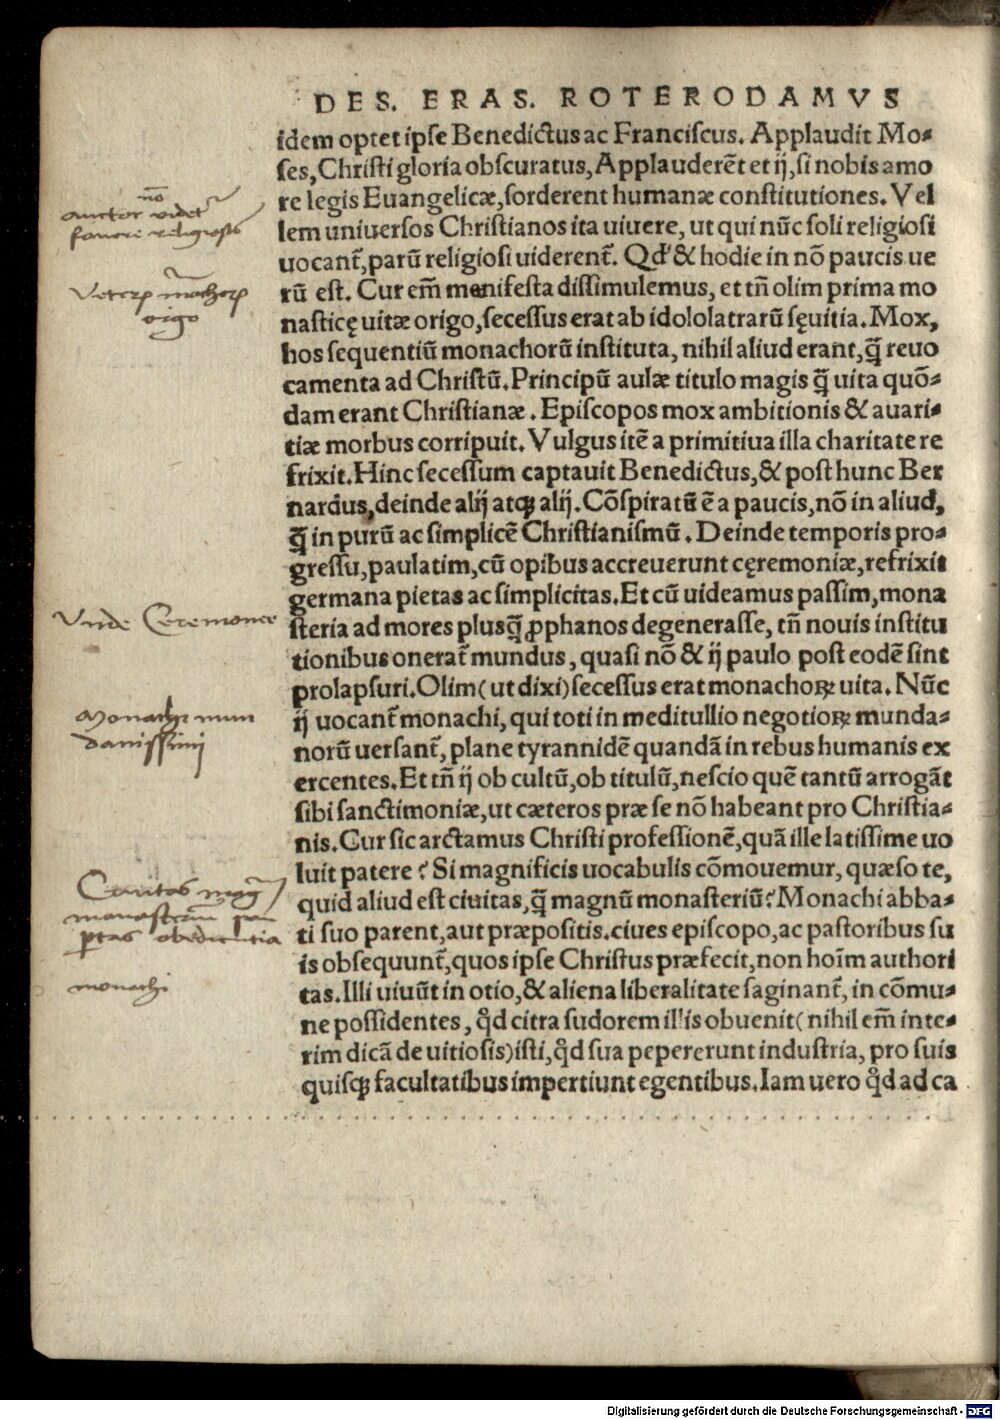 DES. ERAS. ROTERODAMVS
idem optet ipse Benedictus ac Franciscus. Applaudit Mo-
ses, Christi gloria obscuratus, Applauderēt et ij, si nobis amo
re legis Euangelicæ, sorderent humanæ constitutiones. Vel
lem uniuersos Christianos ita uiuere, ut qui nūc soli religiosi
uocant̄, parū religiosi uiderent̄. Qd' & hodie in nō paucis ue
rū est. Cur em̄ manifesta dissimulemus, et tn̄ olim prima mo
nasticę uitæ origo, secessus erat ab idololatrarū sęuitia. Mox,
hos sequentiū monachorū instituta, nihil aliud erant, q̄ reuo
camenta ad Christū. Principū aulæ titulo magis q̄ uita quō-
dam erant Christianæ. Episcopos mox ambitionis & auari-
tiæ morbus corripuit. Vulgus itē a primitiua illa charitate re
frixit. Hinc secessum captauit Benedictus, & post hunc Ber
nardus, deinde alij atqꝫ alij. Cōspiratū ē a paucis, nō in aliud,
q̄ in purū ac simplicē Christianismū. Deinde temporis pro-
gressu, paulatim, cū opibus accreuerunt cęremoniæ, refrixit
germana pietas ac simplicitas. Et cū uideamus passim, mona
steria ad mores plusq̄ ꝓphanos degenerasse, tn̄ nouis institu
tionibus onerat̄ mundus, quasi nō & ij paulo post eodē sint
prolapsuri. Olim (ut dixi) secessus erat monachoꝝ uita. Nūc
ij uocant̄ monachi, qui toti in meditullio negotioꝝ munda-
norū uersant̄, plane tyrannidē quandā in rebus humanis ex
ercentes. Et tn̄ ij ob cultū, ob titulū, nescio quē tantū arrogāt
sibi sanctimoniæ, ut cæteros præ se nō habeant pro Christia-
nis. Cur sic arctamus Christi professionē, quā ille latissime uo
luit patere? Si magnificis uocabulis cōmouemur, quæso te,
quid aliud est ciuitas, q̄ magnū monasteriū? Monachi abba-
ti suo parent, aut præpositis. ciues episcopo, ac pastoribus su
is obsequunt̄, quos ipse Christus præfecit, non hoīm authori
tas. Illi uiuūt in otio, & aliena liberalitate saginant̄, in cōmu-
ne possidentes, qd̄ citra sudorem illis obuenit (nihil em̄ inte-
rim dicā de uitiosis) isti, qd̄ sua pepererunt industria, pro suis
quisqꝫ facultatibus impertiunt egentibus. Iam uero qd̄ ad ca
nō
auctor videt̄
fauere religiosis
Veterꝝ monachorꝝ
origo
Vnde Ceremoniæ
Monachi mun
danissimi
Ciuitas
obedientia
monachi
Digitalisierung gefördert durch die Deutsche Forschungsgemeinschaft - DFG